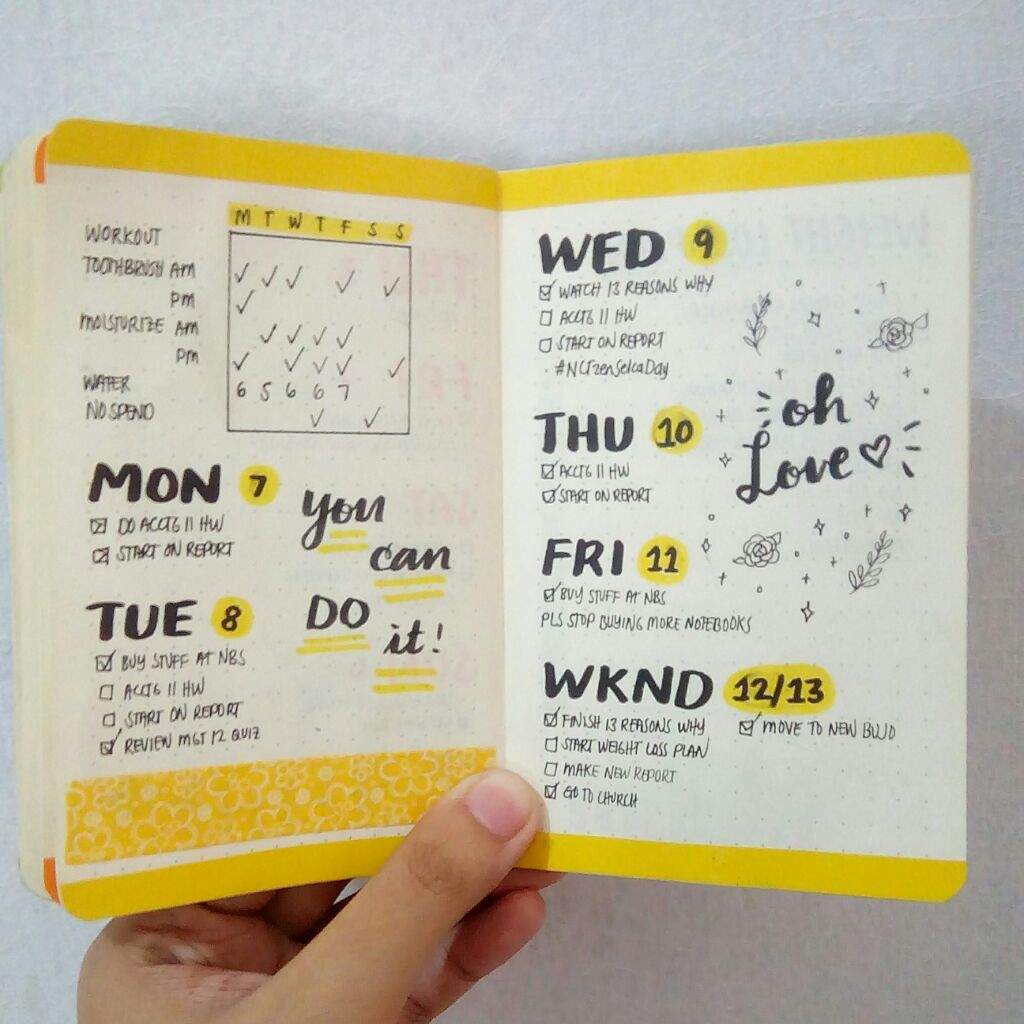 M T W T F S S
WORKOUT
TOOTHBRUSH AM ✓ ✓ ✓ ✓ ✓
PM ✓
MOISTURIZE AM ✓ ✓ ✓ ✓
PM ✓ ✓ ✓ ✓ ✓
WATER 6 5 6 6 7
NO SPEND ✓ ✓
MON 7
☑ DO ACCTG 11 HW
☑ START ON REPORT
you
can
DO
it!
TUE 8
☑ BUY STUFF AT NBS
☐ ACCTG 11 HW
☐ START ON REPORT
☑ REVIEW MGT 12 QUIZ
WED 9
☑ WATCH 13 REASONS WHY
☐ ACCTG 11 HW
☐ START ON REPORT
· #NCTzenSelcaDay
oh
Love
THU 10
☑ ACCTG 11 HW
☑ START ON REPORT
FRI 11
☑ BUY STUFF AT NBS
PLS STOP BUYING MORE NOTEBOOKS
WKND 12/13
☑ FINISH 13 REASONS WHY
☐ START WEIGHT LOSS PLAN
☐ MAKE NEW REPORT
☑ GO TO CHURCH
☑ MOVE TO NEW BUJO